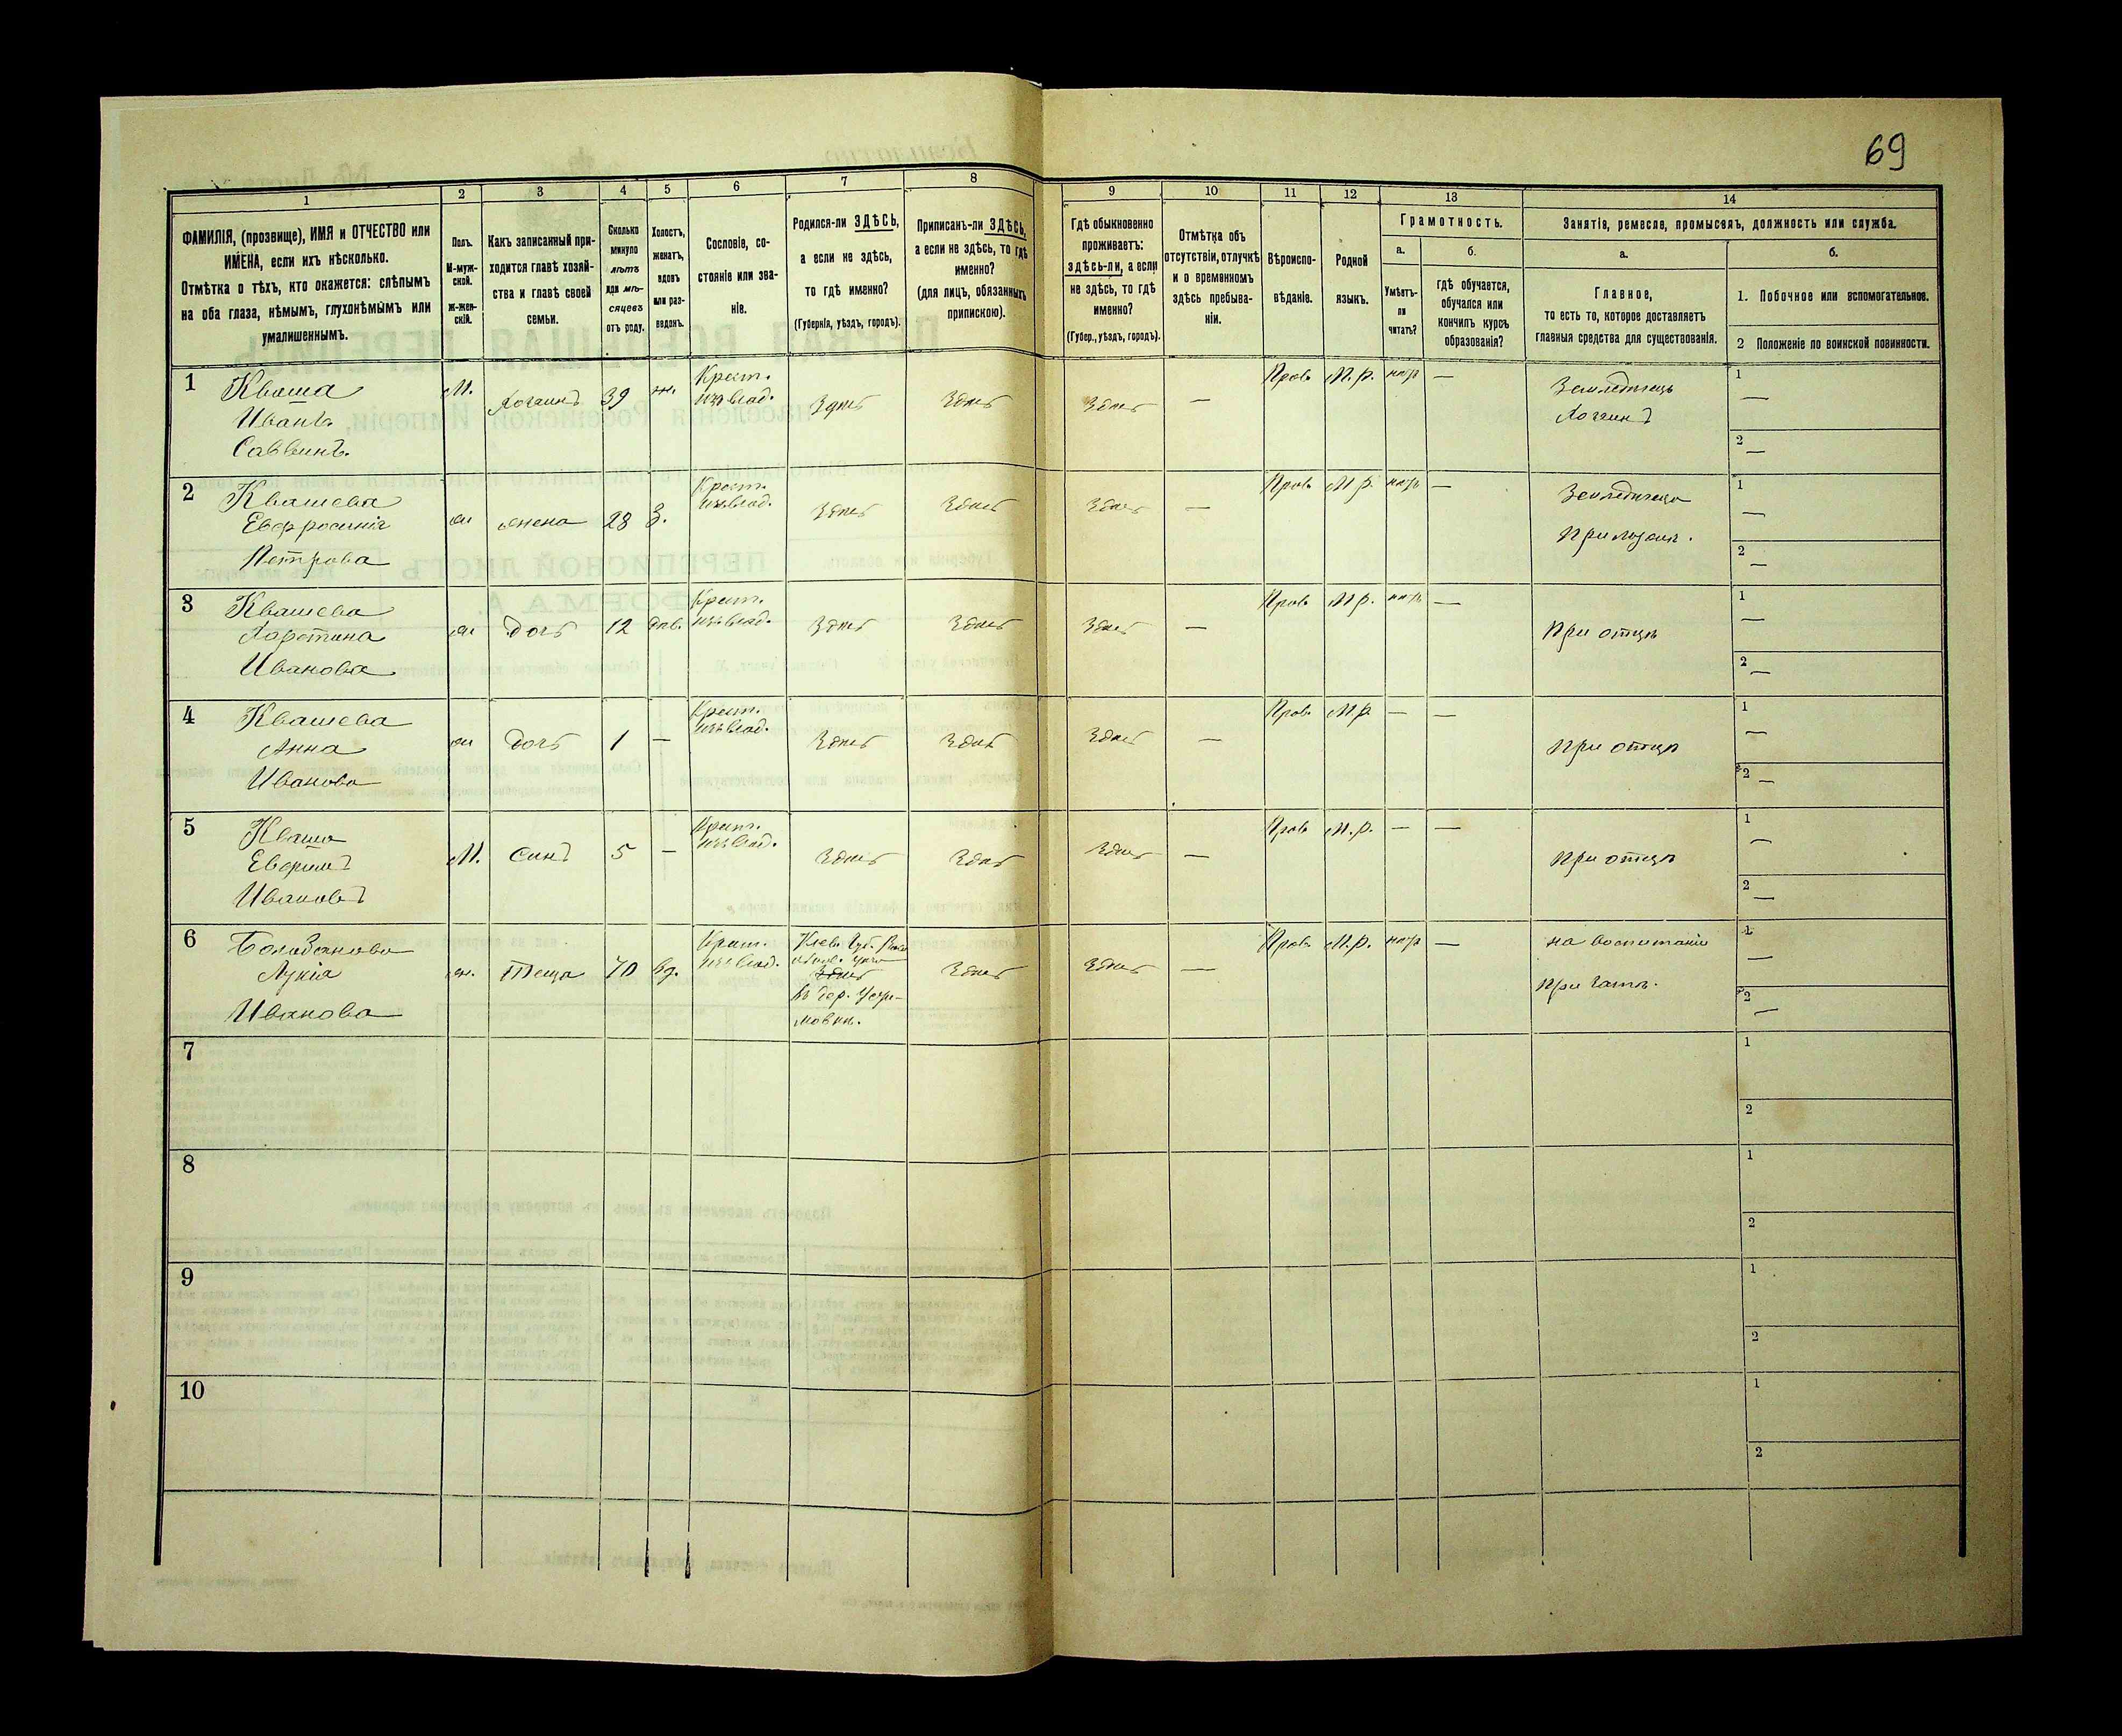 69
1
2
3
4
5
6
7
8
9
10
11
12
13
14
ФАМИЛІЯ, (прозвище), ИМЯ и ОТЧЕСТВО или
ИМЕНА, если ихъ нѣсколько.
Отмѣтка о тѣхъ, кто окажется: слѣпымъ
на оба глаза, нѣмымъ, глухонѣмымъ или
умалишеннымъ.
Полъ.
М-муж-
ской.
Ж-жен-
скій.
Какъ записанный при-
ходится главѣ хозяй-
ства и главѣ своей
семьи.
Сколько
минуло
лѣтъ
или мѣ-
сяцевъ
отъ роду.
Холостъ,
женатъ,
вдовъ
или раз-
веденъ.
Сословіе, со-
стояніе или зва-
ніе.
Родился-ли ЗДѢСЬ,
а если не здѣсь,
то гдѣ именно?
(Губернія, уѣздъ, городъ).
Приписанъ-ли ЗДѢСЬ,
а если не здѣсь, то гдѣ
именно?
(для лицъ, обязанныхъ
припискою).
Гдѣ обыкновенно
проживаетъ:
здѣсь-ли, а если
не здѣсь, то гдѣ
именно?
(Губер., уѣздъ, городъ).
Отмѣтка объ
отсутствіи, отлучкѣ
и о временномъ
здѣсь пребыва-
ніи.
Вѣроиспо-
вѣданіе.
Родной
языкъ.
Грамотность.
а.
Умѣетъ-
ли
читать?
б.
гдѣ обучается,
обучался или
кончилъ курсъ
образованія?
Занятіе, ремесло, промыселъ, должность или служба.
а.
Главное,
то есть то, которое доставляетъ
главныя средства для существованія.
б.
1. Побочное или вспомогательное.
2 Положеніе по воинской повинности.
1
Кваша
Иванъ
Саввинъ.
М. хозяинъ 39 ж.
Крест.
изъ влад.
Здѣсь Здѣсь Здѣсь — Прав. М.р. нѣтъ —
Земледѣлецъ
Хозяинъ
1 —
2 —
2
Квашева
Евфросинія
Петрова
ж жена 28 З.
Крест.
изъ влад.
Здѣсь Здѣсь Здѣсь — Прав. М.р. нѣтъ —
1 —
2 —
3
Квашева
Харитина
Иванова
ж дочь 12 дѣв.
Крест.
изъ влад.
Здѣсь Здѣсь Здѣсь — Прав. М.р. нѣтъ —
при отцѣ
1 —
2 —
4
Квашева
Анна
Иванова
ж дочь 1 —
Крест.
изъ влад.
Здѣсь Здѣсь Здѣсь — Прав. М.р. — —
при отцѣ
1 —
2 —
5
Кваша
Евфимъ
Ивановъ
М. сынъ 5 —
Крест.
изъ влад.
Здѣсь Здѣсь Здѣсь — Прав. М.р. — —
при отцѣ
1 —
2 —
6
Лукія
Иванова
ж. Теща 70 вд.
Крест.
изъ влад.
Кіев. Губ.
Здѣсь
въ дер.
Здѣсь Здѣсь — Прав. М.р. нѣтъ —
на воспитаніи
при зятѣ.
1 —
2 —
7
1
2
8
1
2
9
1
2
10
1
2